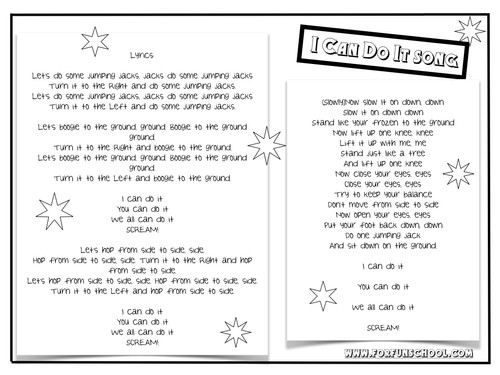 Lyrics
Let's do some jumping jacks, jacks do some jumping jacks
Turn it to the Right and do some jumping jacks.
Let's do some jumping jacks, jacks do some jumping jacks
Turn it to the Left and do some jumping jacks.
Let's boogie to the ground, ground. Boogie to the ground
ground.
Turn it to the Right and boogie to the ground.
Let's boogie to the ground, ground. Boogie to the ground,
ground.
Turn it to the Left and boogie to the ground.
I can do it
You can do it
We all can do it
SCREAM!
Let's hop from side to side, side.
Hop from side to side, side. Turn it to the Right and hop
from side to side.
Let's hop from side to side, side. Hop from side to side, side.
Turn it to the Left and hop from side to side.
I can do it
You can do it
We all can do it
SCREAM!
I Can Do It song
(slowly)Now slow it on down, down
Slow it on down down
Stand like your frozen to the ground
Now lift up one knee, knee
Lift it up with me, me
Stand just like a tree
And lift up one knee
Now close your eyes, eyes
Close your eyes, eyes
Try to keep your balance
Don't move from side to side
Now open your eyes, eyes
Put your foot back down, down
Do one jumping jack
And sit down on the ground.
I can do it
You can do it
We all can do it
SCREAM!
www.forfunschool.com